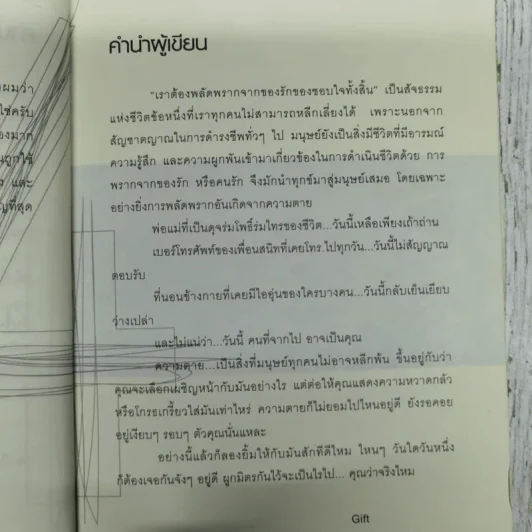 คำนำผู้เขียน
"เราต้องพลัดพรากจากของรักของชอบใจทั้งสิ้น" เป็นสัจธรรม
แห่งชีวิตข้อหนึ่งที่เราทุกคนไม่สามารถหลีกเลี่ยงได้ เพราะนอกจาก
สัญชาตญาณในการดำรงชีพทั่วๆ ไป มนุษย์ยังเป็นสิ่งมีชีวิตที่มีอารมณ์
ความรู้สึก และความผูกพันเข้ามาเกี่ยวข้องในการดำเนินชีวิตด้วย การ
พรากจากของรัก หรือคนรัก จึงมักนำทุกข์มาสู่มนุษย์เสมอ โดยเฉพาะ
อย่างยิ่งการพลัดพรากอันเกิดจากความตาย
พ่อแม่ที่เป็นดุจร่มโพธิ์ร่มไทรของชีวิต...วันนี้เหลือเพียงเถ้าถ่าน
เบอร์โทรศัพท์ของเพื่อนสนิทที่เคยโทร.ไปทุกวัน...วันนี้ไม่สัญญาณ
ตอบรับ
ที่นอนข้างกายที่เคยมีไออุ่นของใครบางคน...วันนี้กลับเย็นเยียบ
ว่างเปล่า
และไม่แน่ว่า...วันนี้ คนที่จากไป อาจเป็นคุณ
ความตาย...เป็นสิ่งที่มนุษย์ทุกคนไม่อาจหลีกพ้น ขึ้นอยู่กับว่า
คุณจะเลือกเผชิญหน้ากับมันอย่างไร แต่ต่อให้คุณแสดงความหวาดกลัว
หรือโกรธเกรี้ยวใส่มันเท่าไหร่ ความตายก็ไม่ยอมไปไหนอยู่ดี ยังรอคอย
อยู่เงียบๆ รอบๆ ตัวคุณนั่นแหละ
อย่างนี้แล้วก็ลองยิ้มให้กับมันสักทีดีไหม ไหนๆ วันใดวันหนึ่ง
ก็ต้องเจอกันจังๆ อยู่ดี ผูกมิตรกันไว้จะเป็นไรไป... คุณว่าจริงไหม
Gift